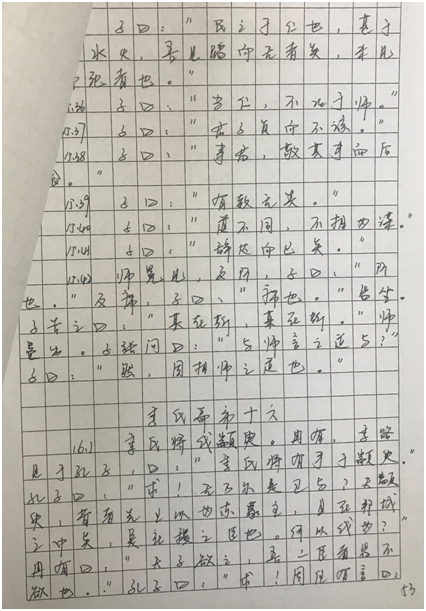 子曰："民之于仁也，甚于
水火，吾见蹈而死者矣，未见
死者也。"
15.36 子曰："当仁，不让于师。"
15.37 子曰："君子贞而不谅。"
15.38 子曰："事君，敬其事而后
食。"
15.39 子曰："有教无类。"
15.40 子曰："道不同，不相为谋。"
15.41 子曰："辞达而已矣。"
15.42 师冕见，及阶，子曰："阶
也。"及席，子曰："席也。"皆坐。
子告之曰："某在斯，某在斯。"师
冕出。子张问曰："与师言之道与？"
子曰："然，固相师之道也。"
季氏篇第十六
16.1 季氏将伐颛臾。冉有、季路
见于孔子，曰："季氏将有事于颛臾。"
孔子曰："求！无乃尔是过与？夫颛
臾，昔者先王以为东蒙主，且在邦域
之中矣，是社稷之臣也。何以伐为？"
冉有曰："夫子欲之，吾二臣者皆不
欲也。"孔子曰："求！周任有言曰：
53